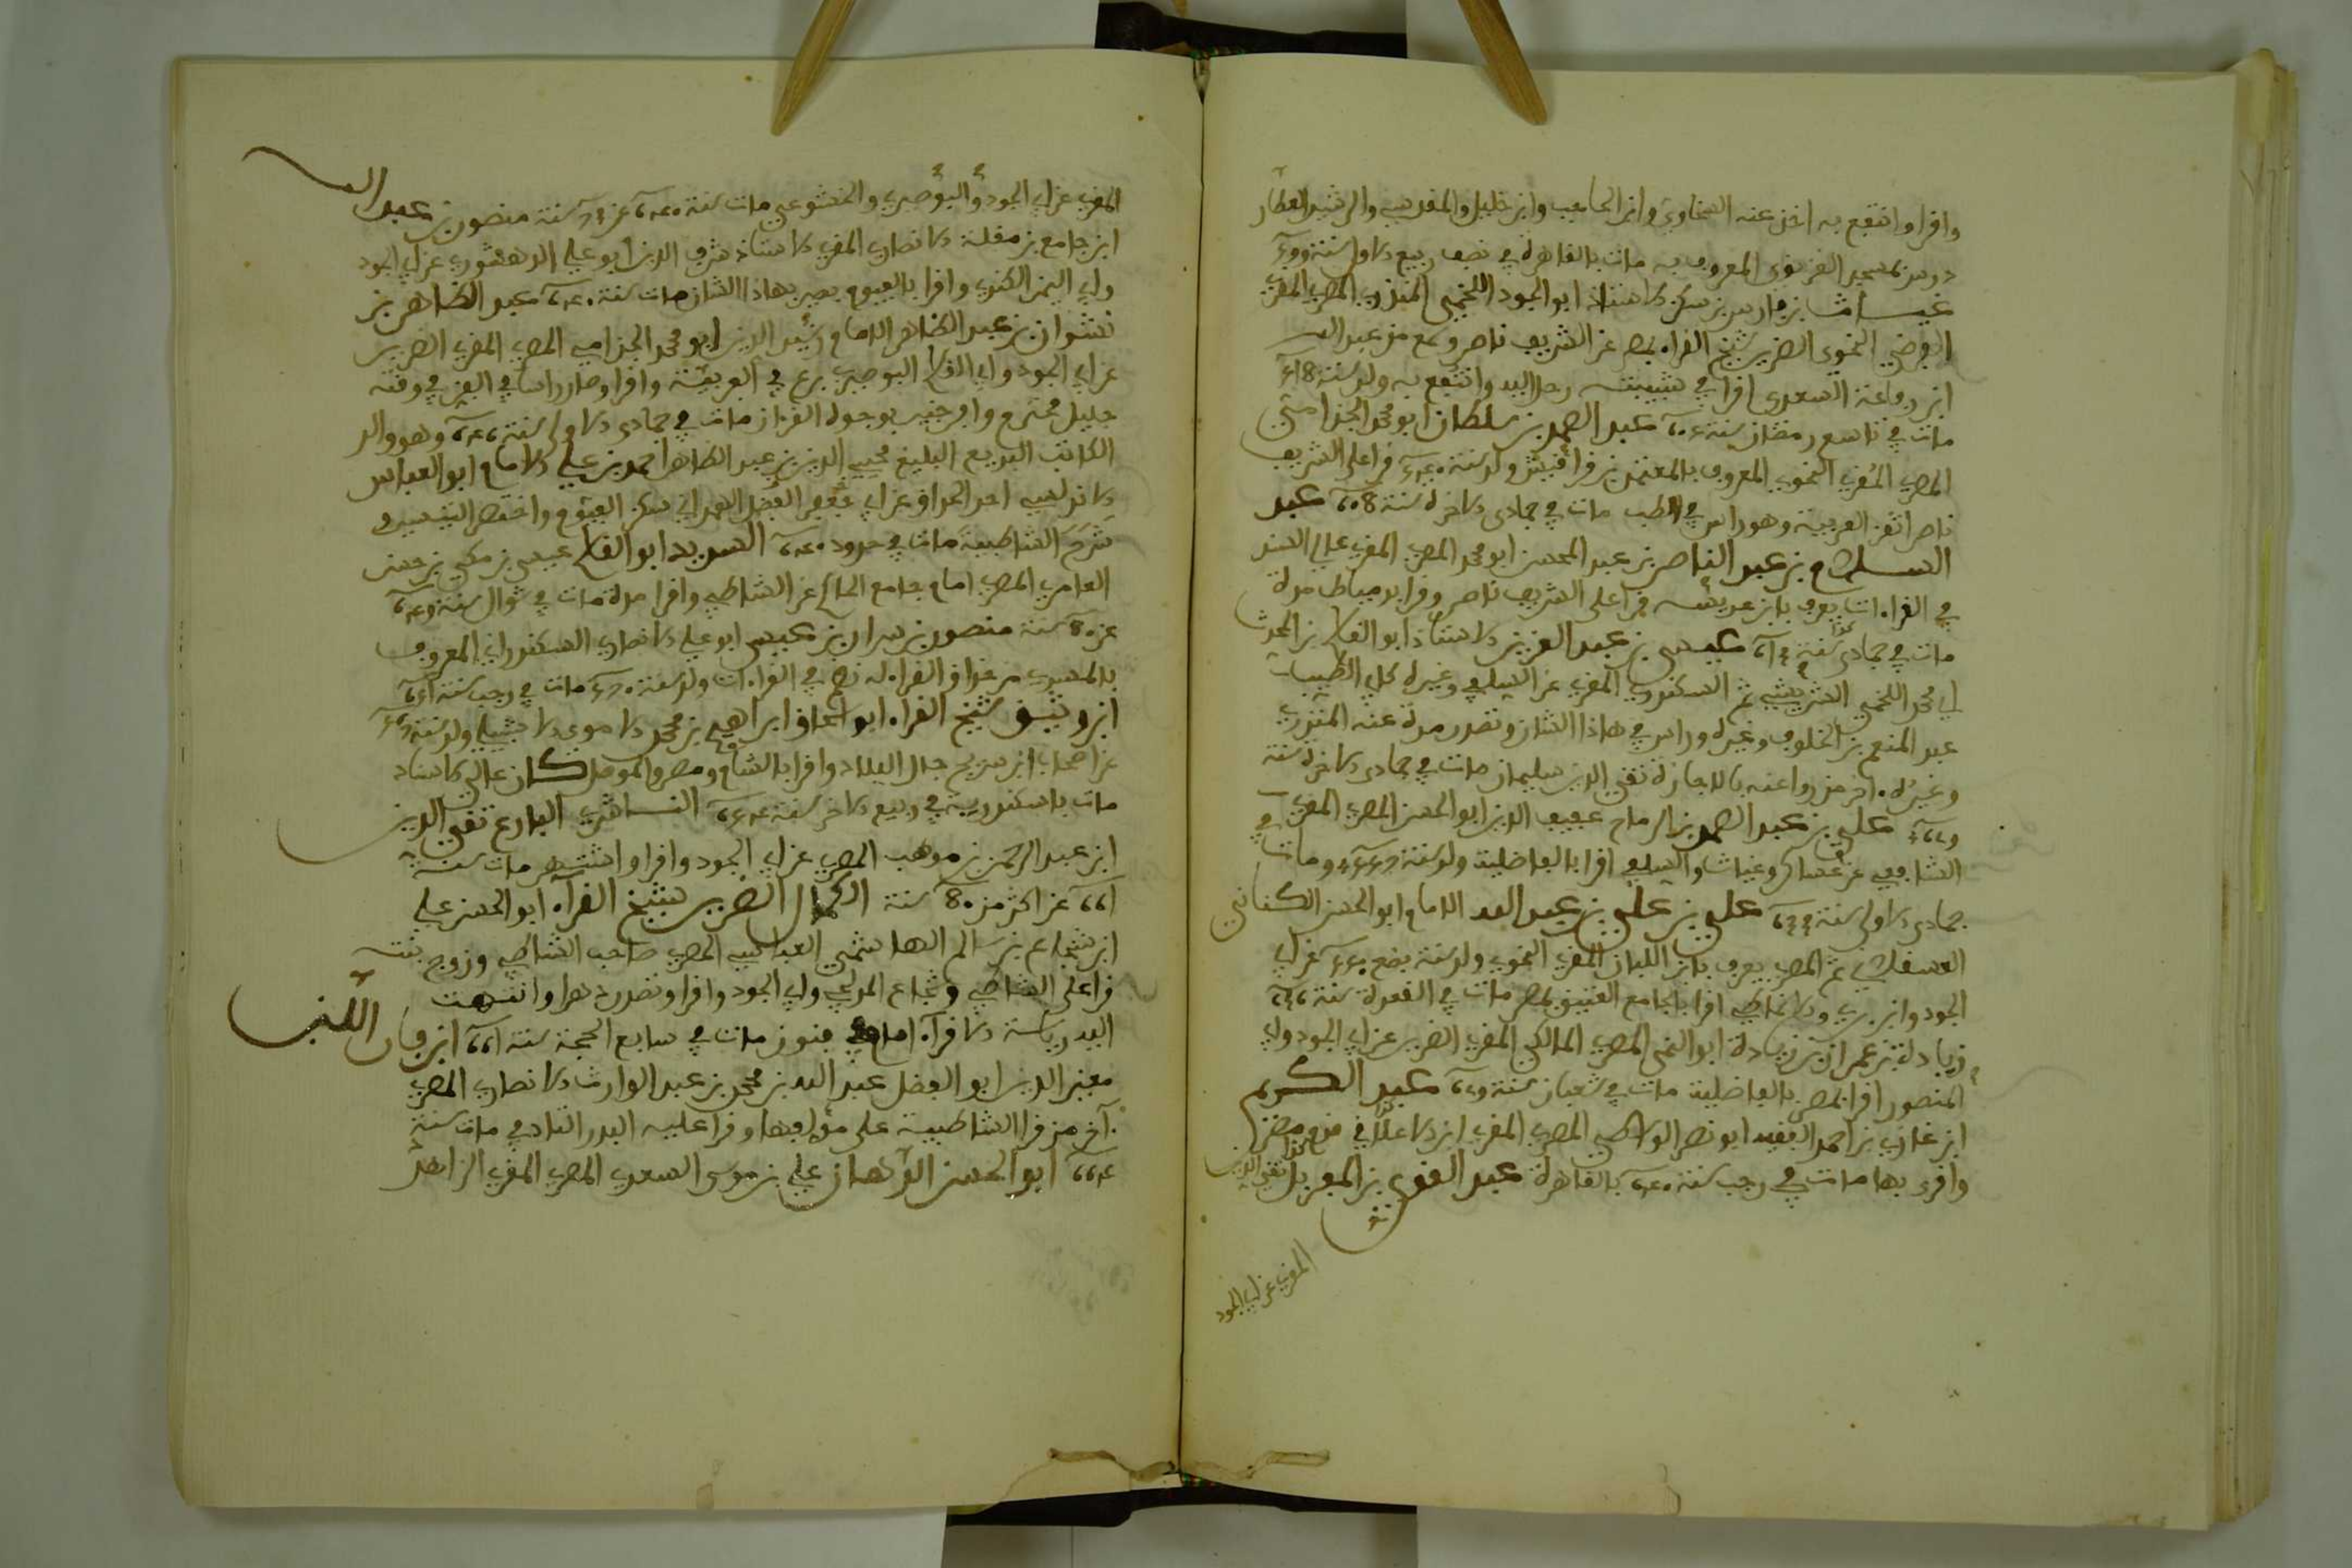 واقرا وانتفع به اخذ عنه السخاوي وابن الحاجب وابن خليل والمقدسي والرشيد العطار
درس بمسجد الغزنوي المعروف به مات بالقاهرة في نصف ربيع الاول سنة
غيـاث بن فارس بن سكن الاستاذ ابو الجود اللخمي المنذري المصري المقري
الفرضي النحوي الضرير شيخ القراء بمصر عن الشريف ناصر وسمع من عبد الله
ابن رفاعة السعدي اقرا في شبيبته رحل اليه وانتفع به ولد سنة
مات في تاسع رمضان سنة عبد الصمد بن سلطان ابو محمد الجذامي
المصري المقري النحوي المعروف بالمعتمد بن قراقيش ولد سنة قرا على الشريف
ناصر اتقن العربية وهو راس في الطب مات في جمادى الاخرة سنة عبد
السلام بن عبد الناصر بن عبد المحسن ابو محمد المصري المقري عالي السند
في القراءات يعرف بابن عديسة قرا على الشريف ناصر وقرا بدمياط مدة
مات في جمادى سنة عيسى بن عبد العزيز الاستاذ ابو القاسم بن المحدث
ابي محمد اللخمي الشريشي ثم السكندري المقري عن السلفي وغيره كابي الطيب
عبد المنعم بن الخلوف وغيره وراس في هاذا الشان وتصدر مدة عنه المنذري
وغيره اخر من روا عنه بالاجازة تقي الدين سليمان مات في جمادى الاخرة سنة
علي بن عبد الصمد بن الرماح عفيف الدين ابو الحسن المصري المقري
الشافعي عن عساكر وغياث والسلفي اقرا بالفاضلية ولد سنة ومات في
جمادى الاولى سنة علي بن علي بن عبد الله الامام ابو الحسن الكناني
العسقلاني ثم المصري يعرف بابن اللبان المقري النحوي ولد سنة بضع عن ابي
الجود وابن بري والارتاحي اقرا بالجامع العتيق بمصر مات في القعدة سنة
زيادة بن عمران بن زيادة ابو النمى المصري المالكي المقري الضرير عن ابي الجود وابي
المنصور اقرا بمصر بالفاضلية مات في شعبان سنة عبد الكريم
ابن غازي بن احمد الفقيه ابو نصر الواسطي المصري المقري ابن الاغلاقي قدم مصر
واقرى بها مات في رجب سنة بالقاهرة عبد القوي بن المغربل تقي الدين
المقري عن ابي الجود
المقري عن ابي الجود والبوصيري والخشوعي مات سنة عن سنة منصور بن عبد الله
ابن جامع بن مقلة الانصاري المقري الاستاذ شرف الدين ابو علي الدهشوري عن ابي الجود
وابي اليمن الكندي واقرا بالفيوم بصير بهاذا الشان مات سنة عبد الظاهر بن
نشوان بن عبد الظاهر الامام رشيد الدين ابو محمد الجذامي المصري المقري الضرير
عن ابي الجود وابي القاسم البوصيري برع في العربية واقرا وصار راسا في الفن في وقته
جليل محترم وافر خبير بوجوه القران مات في جمادى الاولى سنة وهو والد
الكاتب البديع البليغ محيي الدين بن عبد الظاهر احمد بن علي الامام ابو العباس
الاندلسي احد الحذاق عن ابي جعفر الفضل الهمداني سكن الفيوم واختصر التيسير
شرح الشاطبية مات في حدود السديد ابو القاسم عيسى بن مكي بن حسين
العامري المصري امام جامع الحاكم عن الشاطبي واقرا مدة مات في شوال سنة
عن سنة منصور بن سرار بن عيسى ابو علي الانصاري السكندراني المعروف
بالمسدي من حذاق القراء له نظم في القراءات ولد سنة مات في رجب سنة
ابن وثيق شيخ القراء ابو اسحاق ابراهيم بن محمد الاموي الاشبيلي ولد سنة
عن اصحاب ابن شريح جال البلاد واقرا بالشام ومصر والموصل كان عالي الاسناد
مات باسكندرية في ربيع الاخر سنة الناشري البارع تقي الدين
ابن عبد الرحمن بن موهب المصري عن ابي الجود واقرا واشتهر مات سنة
عن اكثر من سنة الكمال الضرير شيخ القراء ابو الحسن علي
ابن شجاع بن سالم الهاشمي العباسي المصري صاحب الشاطبي وزوج بنته
قرا على الشاطبي وشجاع المدلجي وابي الجود واقرا وتصدر دهرا وانتهت
اليه رياسة الاقراء امام فنون مات في سابع الحجة سنة ابن فار اللبن
معين الدين ابو الفضل عبد الله بن محمد بن عبد الوارث الانصاري المصري
آخر من قرا الشاطبية على مؤلفها وقرا عليه البدر التادفي مات سنة
ابو الحسن الدهان علي بن موسى السعدي المصري المقري الزاهد